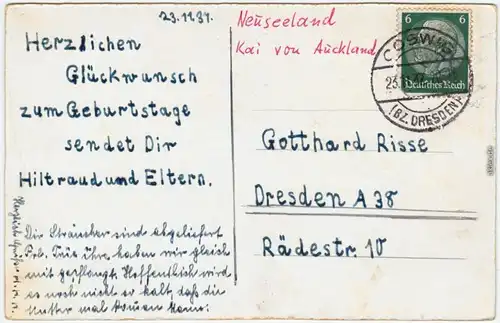 23.11.37.
Neuseeland
Kai von Auckland
Herzlichen
Glückwunsch
zum Geburtstage
sendet Dir
Hiltraud und Eltern.
Die Sträucher sind abgeliefert
Frl. Ihre haben wir gleich
mit gepflanzt. Hoffentlich wird
es noch nicht so kalt, daß die
Mutter mal kommen kann.
6
Deutsches Reich
COSWIG
(BZ. DRESDEN)
Gotthard Risse
Dresden A 38
Rädestr. 10